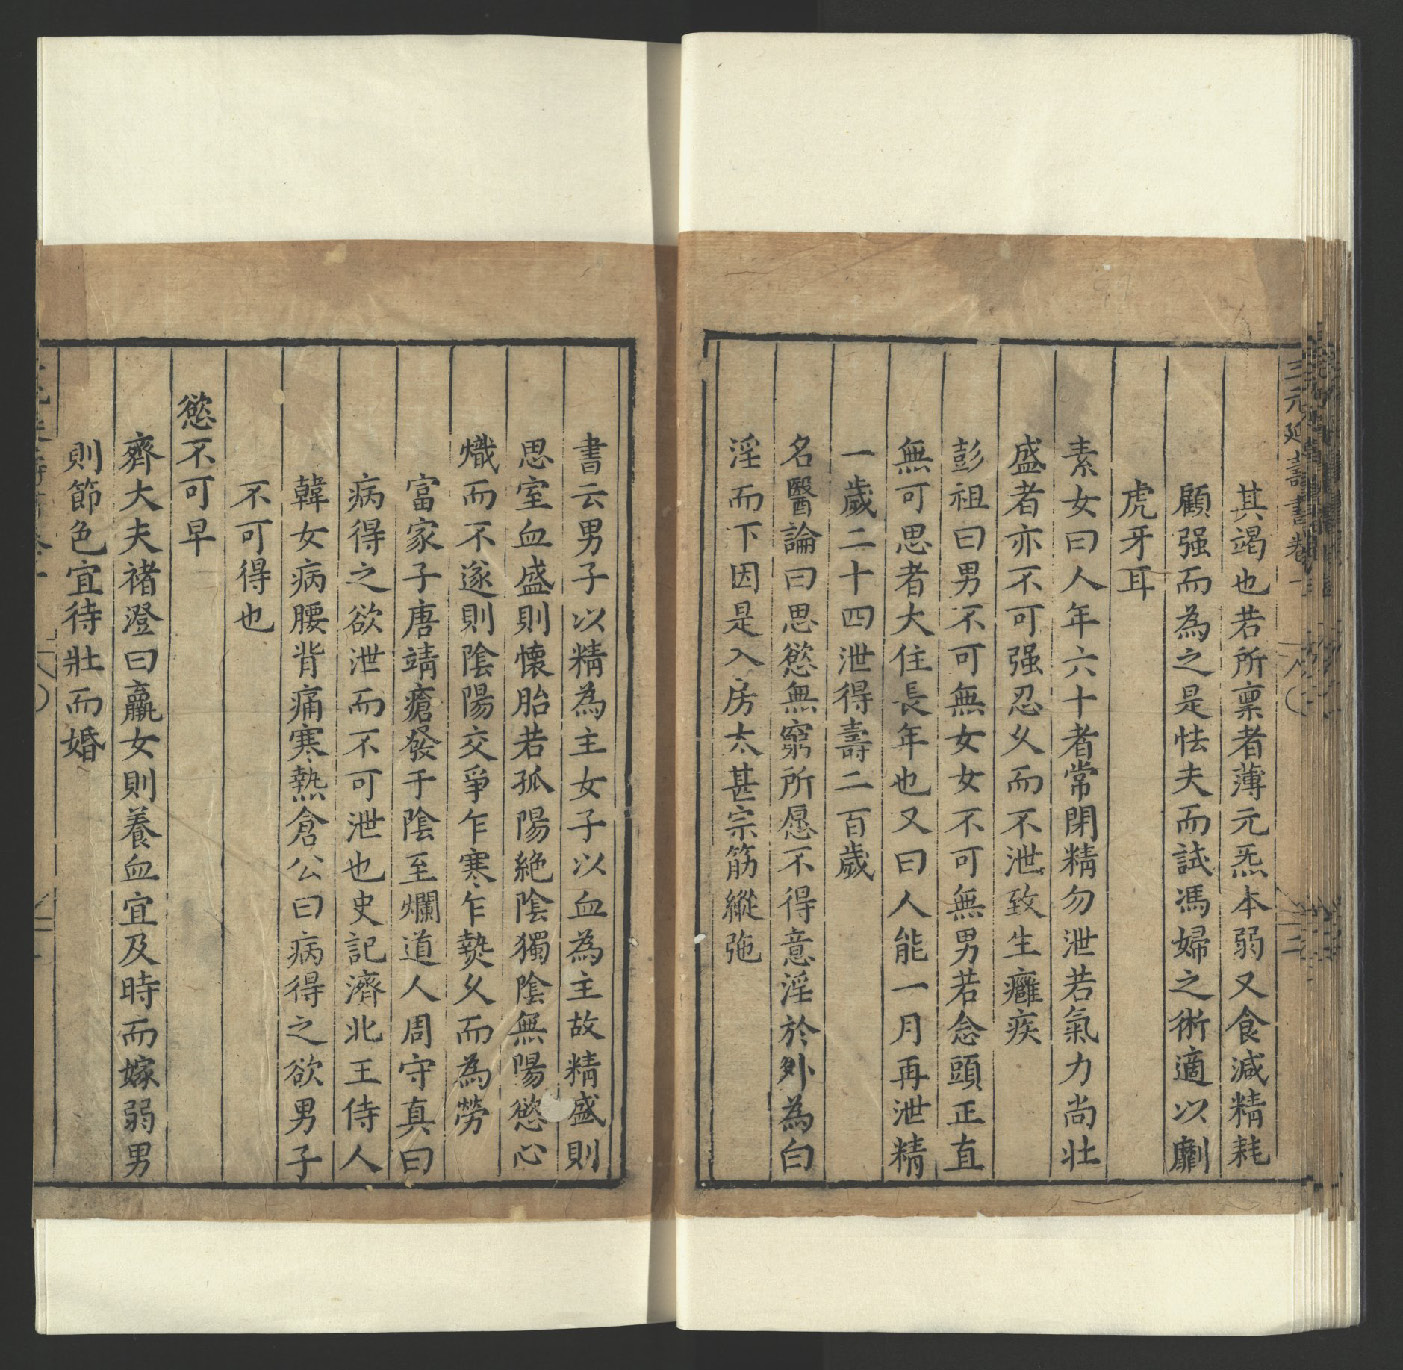 三元延壽書卷一
其竭也若所禀者薄元炁本弱又食減精耗
顧强而為之是怯夫而試馮婦之術適以劘
虎牙耳
素女曰人年六十者常閉精勿泄若氣力尚壯
盛者亦不可强忍久而不泄致生癰疾
彭祖曰男不可無女女不可無男若念頭正直
無可思者大佳長年也又曰人能一月再泄精
一歲二十四泄得壽二百歲
名醫論曰思慾無窮所愿不得意淫於外為白
淫而下因是入房太甚宗筋縱弛
書云男子以精為主女子以血為主故精盛則
思室血盛則懷胎若孤陽絶陰獨陰無陽慾心
熾而不遂則陰陽交爭乍寒乍𤍠久而為勞
富家子唐靖瘡發于陰至爛道人周守真曰
病得之欲泄而不可泄也史記濟北王侍人
韓女病腰背痛寒熱倉公曰病得之欲男子
不可得也
慾不可早
齊大夫褚澄曰羸女則養血宜及時而嫁弱男
則節色宜待壯而婚